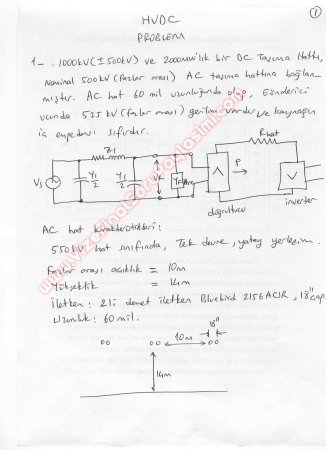 ①
HVDC
PROBLEM
1-. 1000kV (±500kV) ve 2000MW'lık bir DC Taşıma Hattı,
Nominal 500kV (fazlar arası) AC taşıma hattına bağlan-
mıştır. AC hat 60 mil uzunluğunda olup, Gönderici
ucunda 525 kV (fazlar arası) gerilim vardır ve kaynağın
iç empedansı sıfırdır.
Rhat
Z1
Vs
Y1/2
Y1/2
VR
P
doğrultucu
inverter
AC hat karakteristikleri:
550kV hat sınıfında, Tek devre, yatay yerleşim.
Fazlar arası açıklık = 10m
Yükseklik = 14m
İletken: 2li demet iletken Bluebird 2156 ACSR, 18" çap.
Uzunluk: 60 mil.
18"
10m
14m